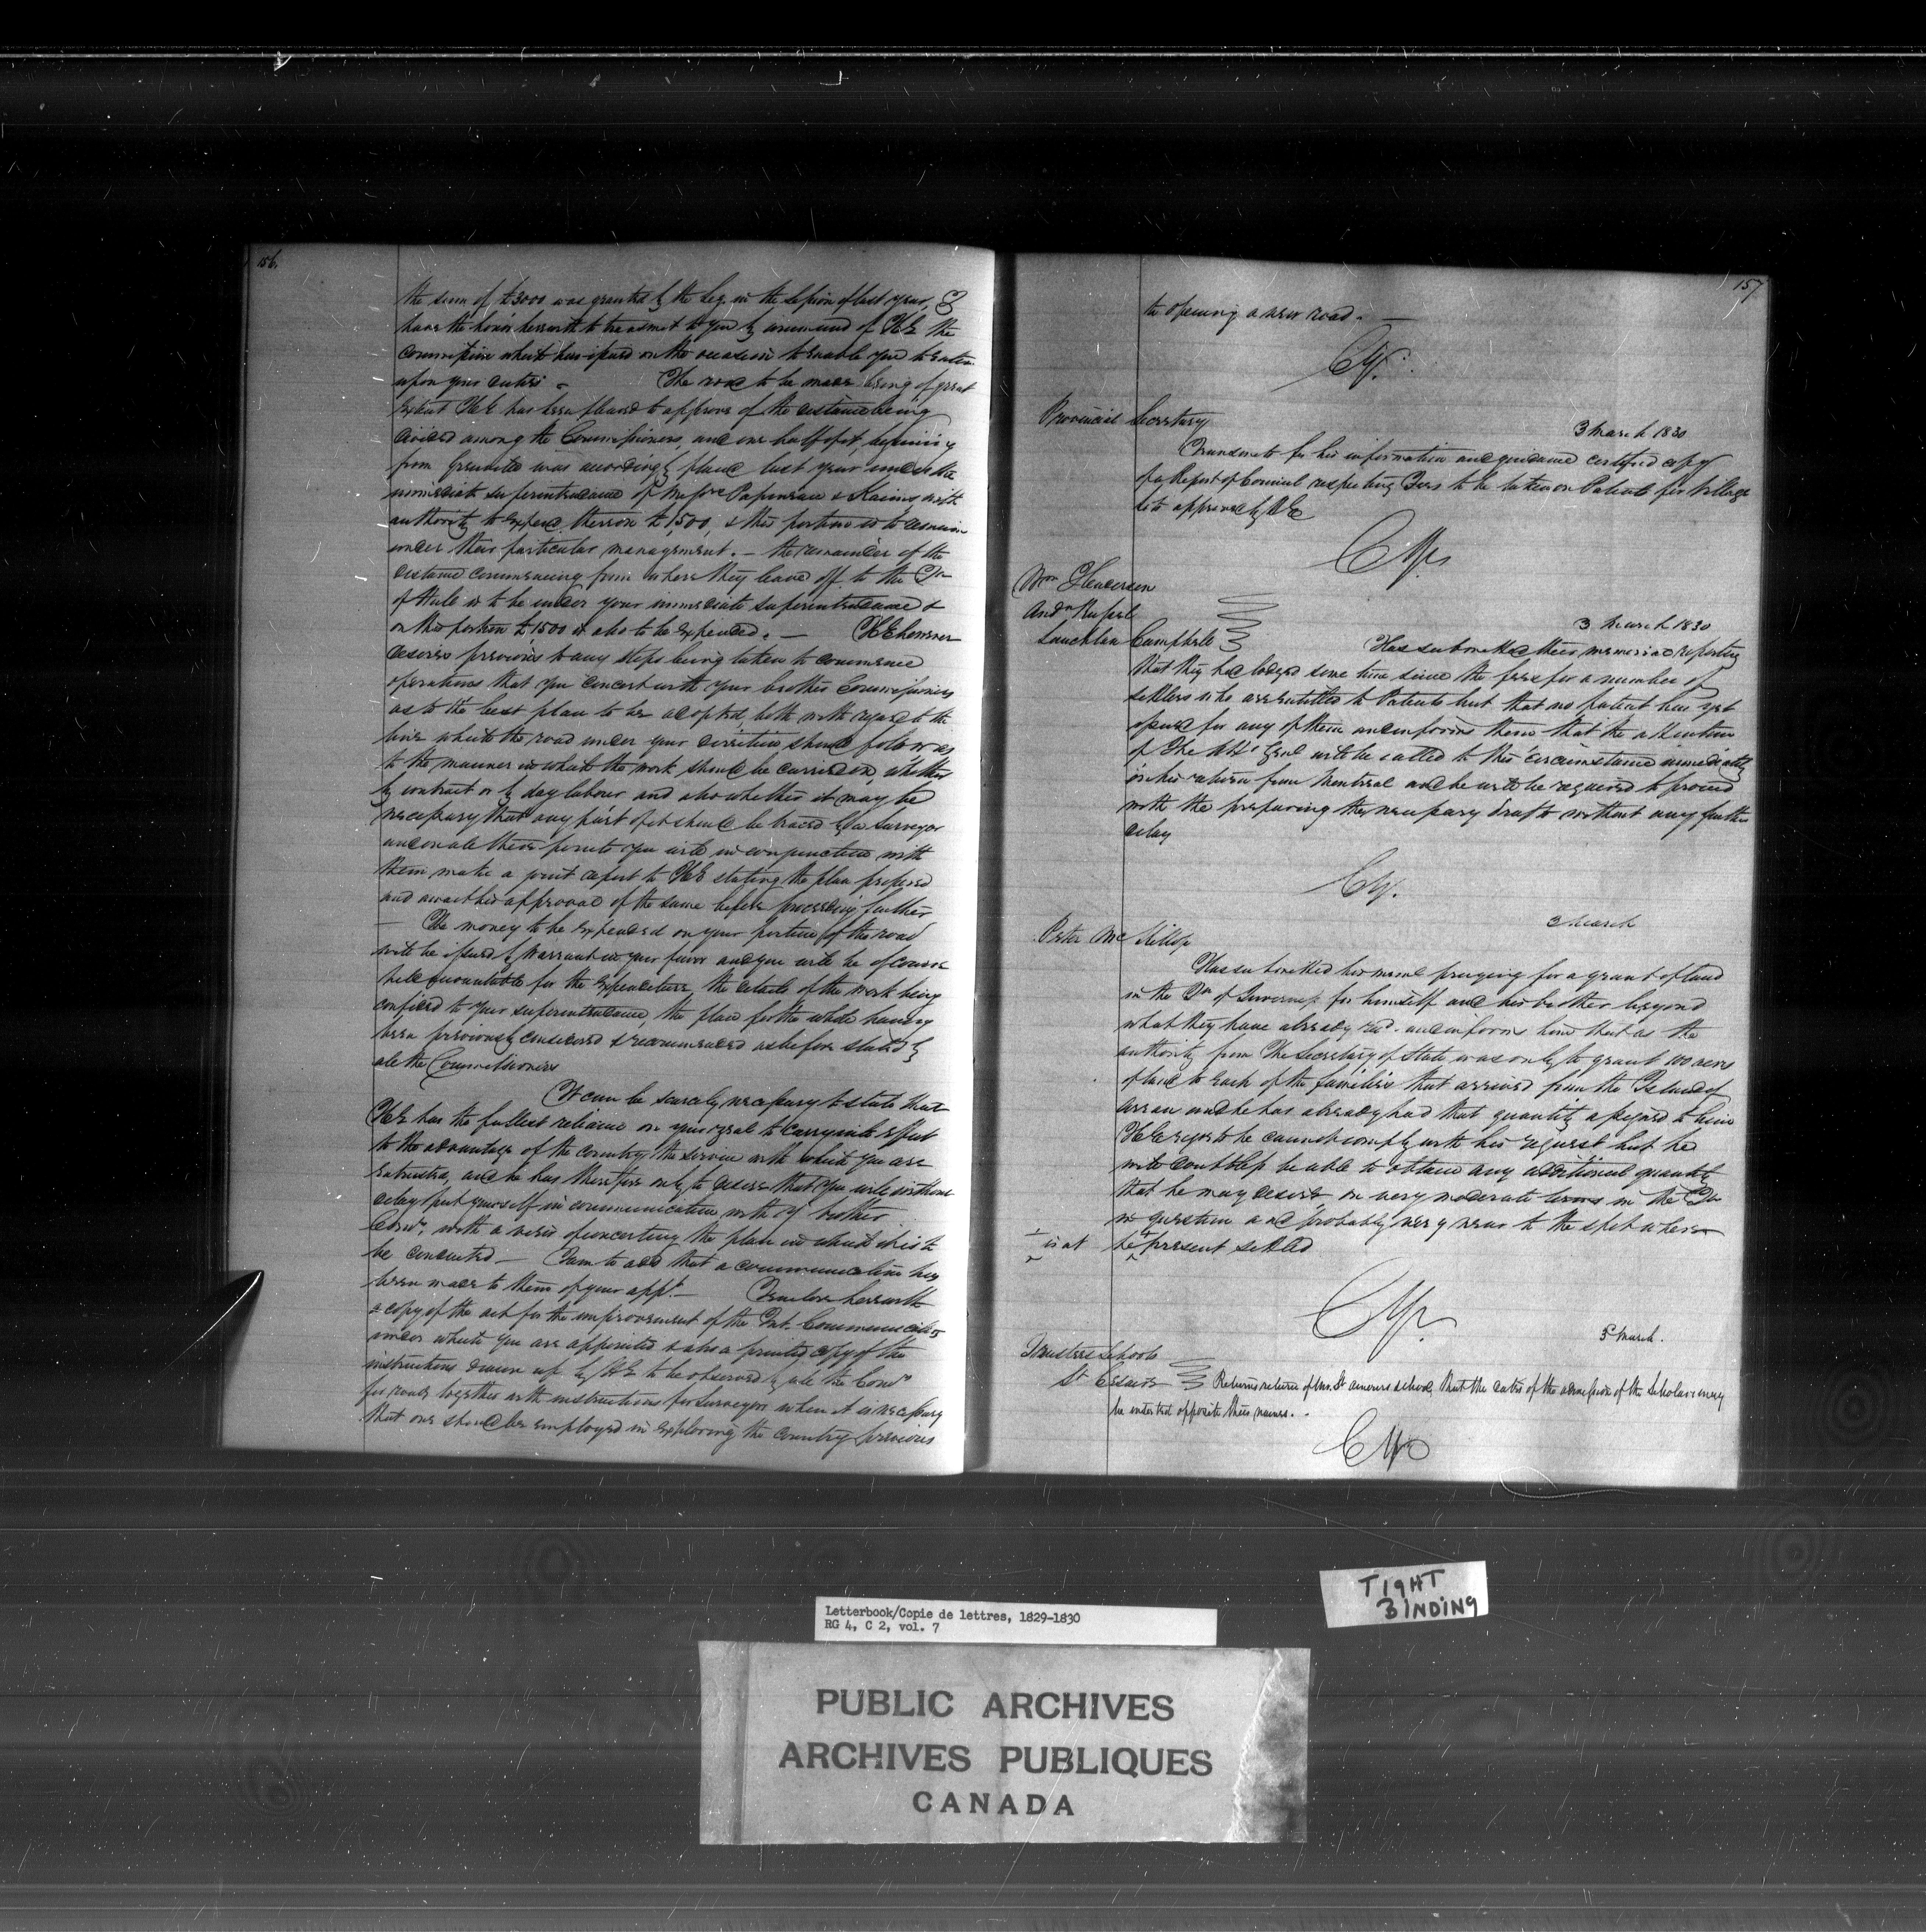 156.
the sum of £3000 was granted by the Leg. in the Session of last year, I
have the honor herewith to transmit to you by command of H E the
Commission which has issued on the occasion to enable you to enter
upon your duties - The road to be made being of great
extent H E has been pleased to approve of the distance being
divided among the Commissioners, and one half of it, beginning
from Grenville was accordingly placed last year under the
immediate superintendance of Messrs Papineau & Kains with
authority to expend thereon £1,500, & this portion is to remain
under their particular management. - the remainder of the
distance commencing from where they leave off to the Tn
of Hull is to be under your immediate superintendance &
on this portion £1,500 is also to be expended. - H E however
desires previous to any steps being taken to commence
operations that you concert with your brother Commissioners
as to the best plan to be adopted, both with regard to the
line which the road under your direction should follow as
to the manner in which the work should be carried on, whether
by contract or by day labour and also whether it may be
necessary that any part of it should be traced by a Surveyor
and on all these points you will in conjunction with
them make a joint report to H E stating the plan proposed
and await his approval of the same before proceeding further
- The money to be expended on your portion of the road
will be issued by Warrant in your favor and you will be of course
held accountable for the expenditure, the details of the work being
confided to your superintendance, the plan for the whole having
been previously considered & recommended as before stated by
all the Commissioners
It can be scarcely necessary to state that
H E has the fullest reliance on your zeal to carry into effect
to the advantage of the country the service with which you are
entrusted, and he has therefore only to desire that you will without
delay put yourself in communication with yr brother
Comrs, with a view of concerting the plan in which it is to
be conducted - I am to add that a communication has
been made to them of your appt. - I enclose herewith
a copy of the act for the improvement of the Int. Communications
under which you are appointed & also a printed copy of the
instructions drawn up by H E to be observed by all the Comrs
for roads together with instructions for Surveyors when it is necessary
that one should be employed in exploring the country previous
157
to opening a new road. -
CY.
Provincial Secretary
3 March 1830
Transmits for his information and guidance certified copy
of a Report of Council respecting Fees to be taken on Patents for Village
lots approved by H E
CY
Wm Henderson
Andw Russel
Lauchlan Campbell
3 March 1830
Has submitted their memorial reporting
that they had lodged some time since the fees for a number of
settlers who are entitled to Patents but that no patent has yet
issued for any of them and informs them that the attention
of The Att'y Genl will be called to this circumstance immediately
on his return from Montreal and he will be required to proceed
with the preparing the necessary drafts without any further
delay
CY.
3 March
Peter Mc Killop
Has submitted his meml praying for a grant of land
in the Tn of Inverness for himself and his brother beyond
what they have already recd. and informs him that as the
authority from The Secretary of State was only to grant 100 acres
of land to each of the families that arrived from the Island of
Arran and he has already had that quantity assigned to him
H E regrets he cannot comply with his request but he
will doubtless be able to obtain any additional quantity
that he may desire, on very moderate terms in the Tn
in question and probably very near to the spot where
is at he present settled
CY.
5 March.
Trustees Schools
St Césaire
Returns return of Mr. St school, that the dates of the admission of the Scholars may
be inserted opposite their names. .
CY
TIGHT
BINDING
Letterbook/Copie de lettres, 1829-1830
RG 4, C 2, vol. 7
PUBLIC ARCHIVES
ARCHIVES PUBLIQUES
CANADA